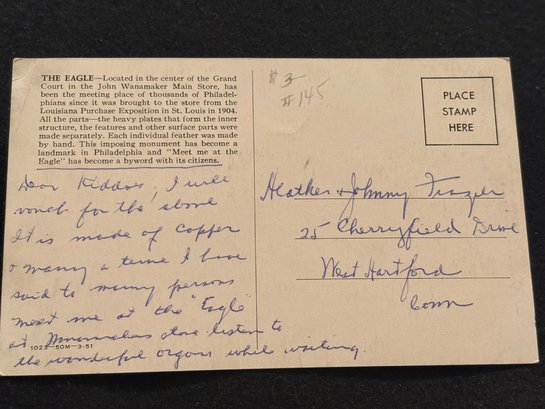 THE EAGLE—Located in the center of the Grand
Court in the John Wanamaker Main Store, has
been the meeting place of thousands of Philadel-
phians since it was brought to the store from the
Louisiana Purchase Exposition in St. Louis in 1904.
All the parts—the heavy plates that form the inner
structure, the features and other surface parts were
made separately. Each individual feather was made
by hand. This imposing monument has become a
landmark in Philadelphia and "Meet me at the
Eagle" has become a byword with its citizens.
Dear Kiddies, I will
vouch for the above
It is made of Copper
& many a time I have
said to many persons
meet me at the "Eagle"
at Wanamakers store listen to
the wonderful organs while waiting
1023-50M-3-51
# 3
#145
PLACE
STAMP
HERE
Heather & Johnny Frazier
25 Cherryfield Drive
West Hartford
Conn